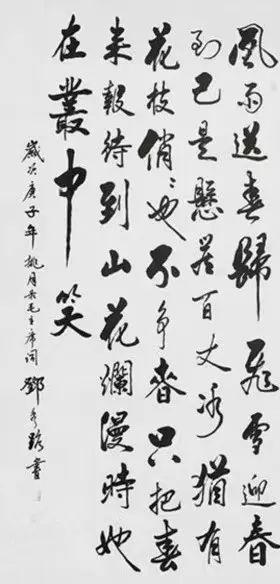 風雨送春歸飛雪迎春
到已是懸崖百丈冰猶有
花枝俏〻也不争春只把春
来報待到山花爛漫時她
在叢中笑
歲次庚子年桃月录毛主席詞 鄧路書